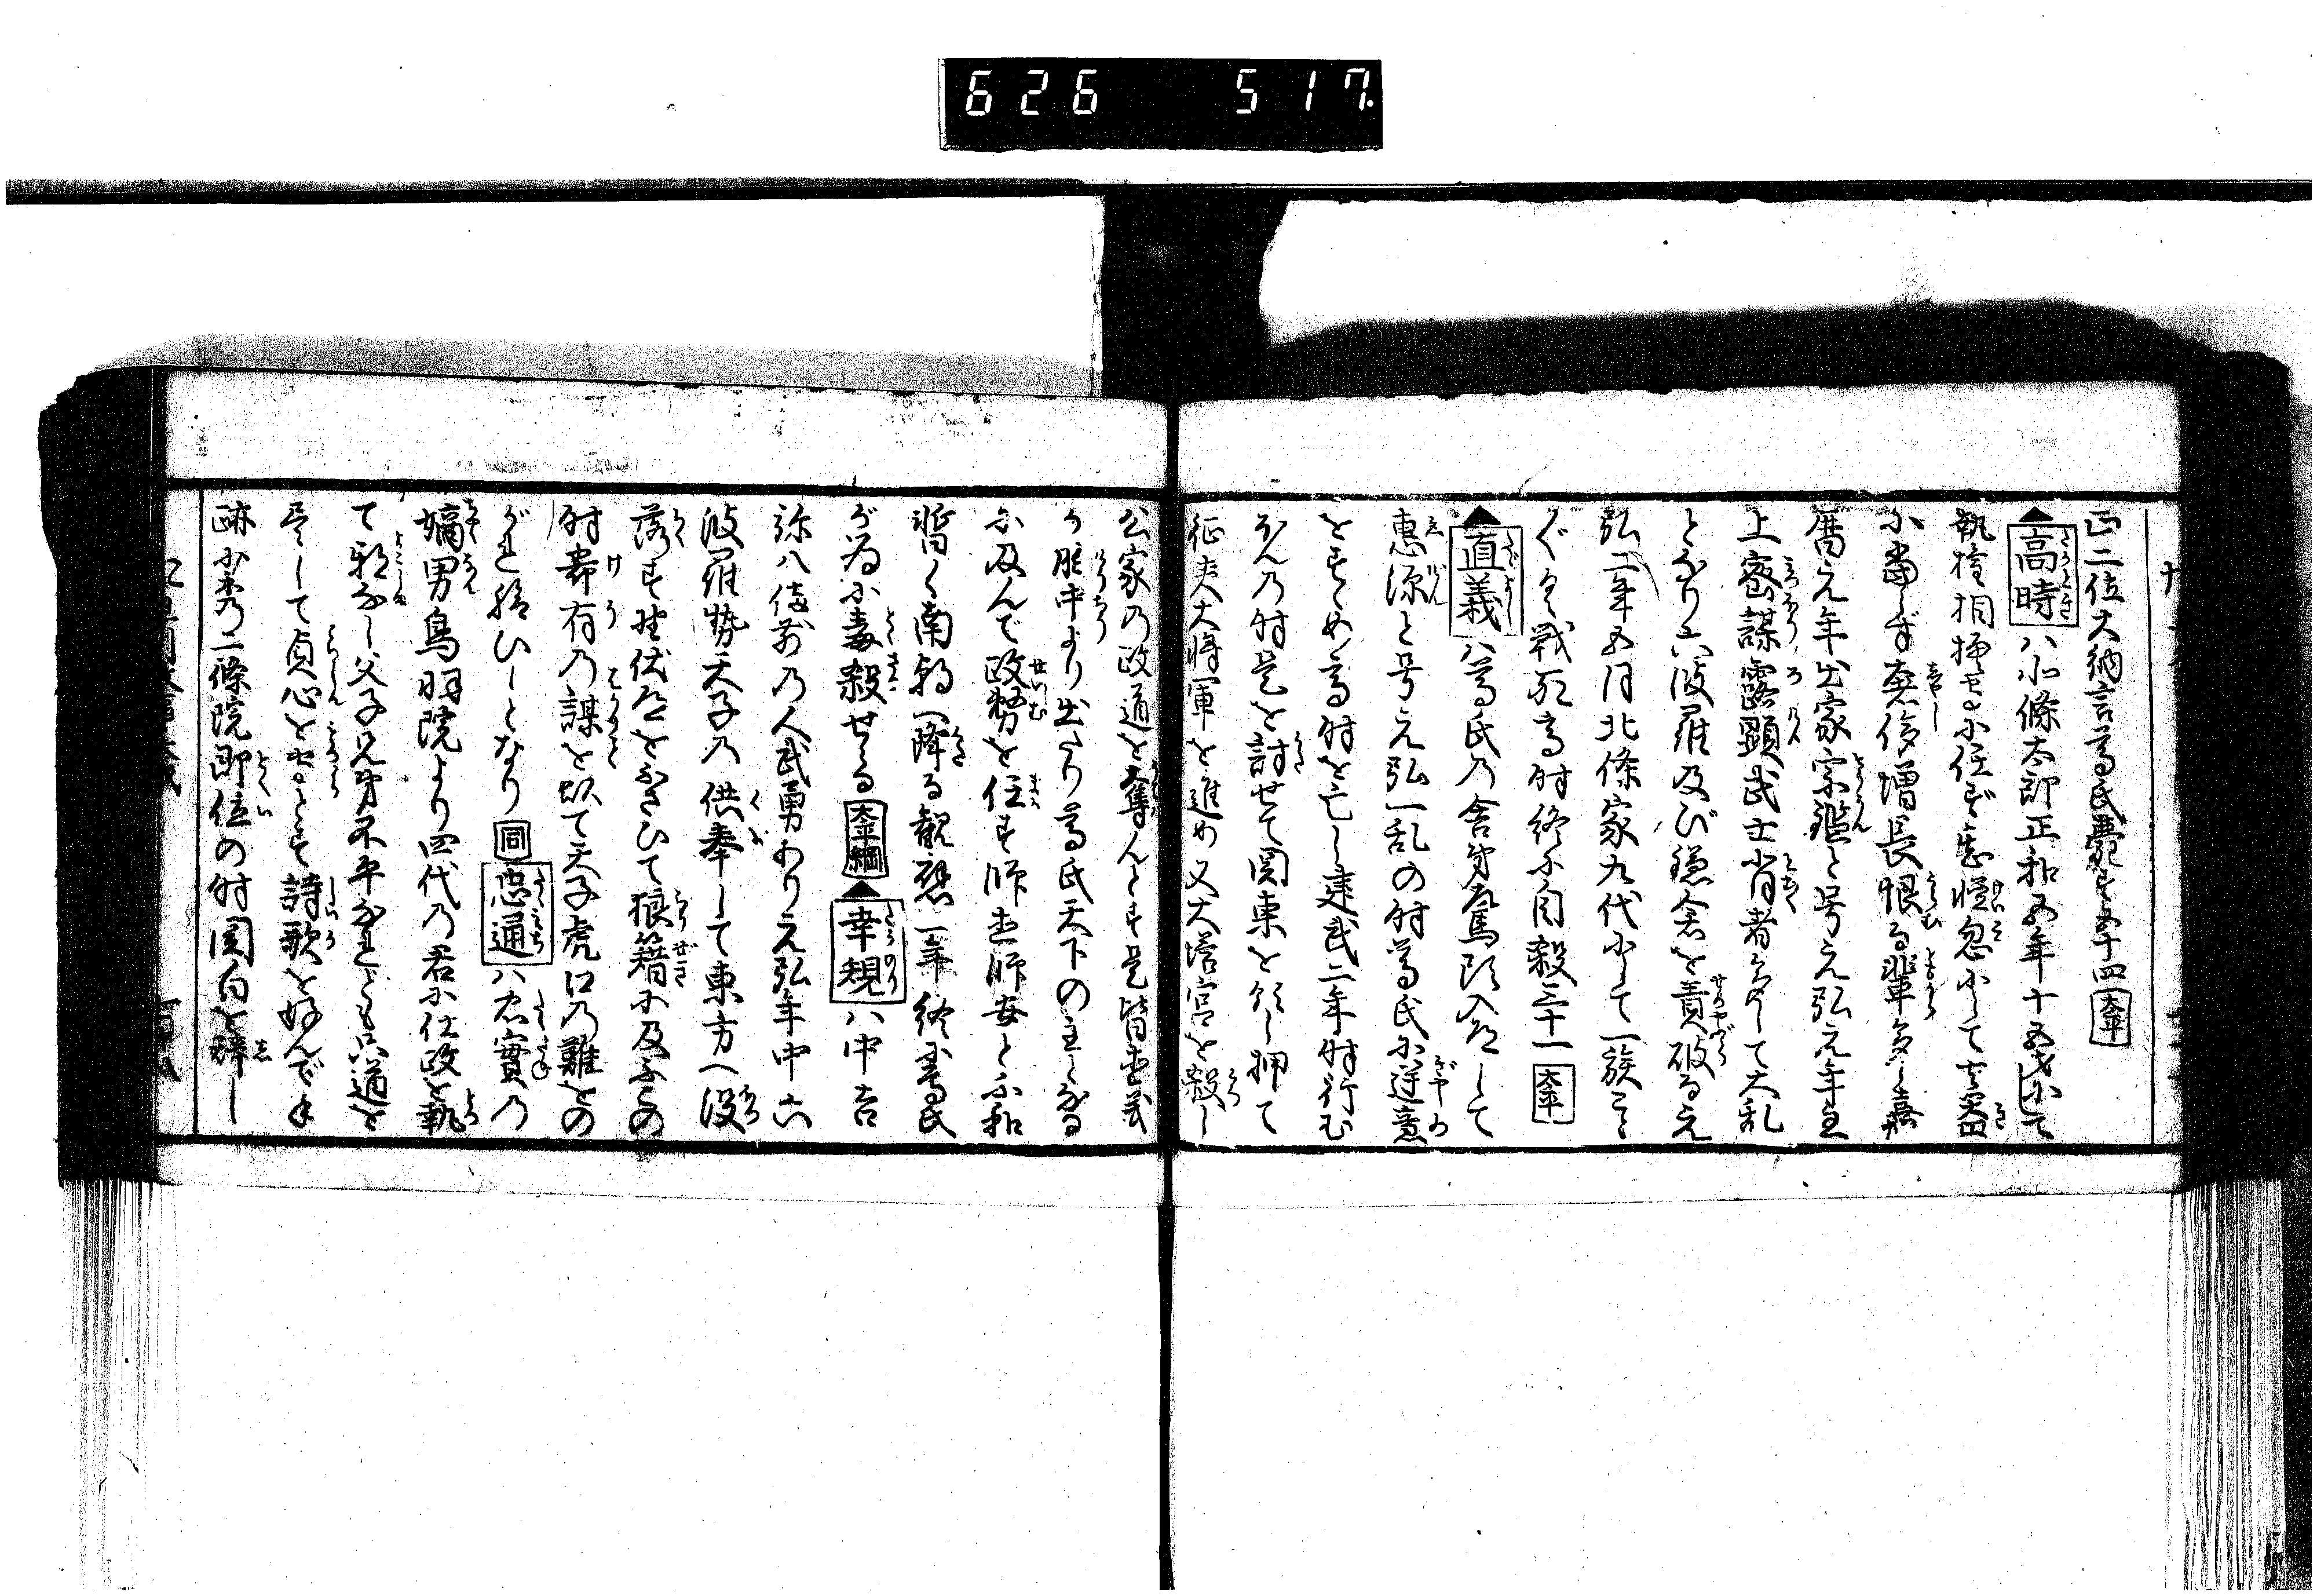 626 517
正二位大納言尊氏薨ず五十四 太平
▲高時ハ北條太郎正和五年十五才にて
執権相摸守に任ず懈怠忽にして其器
に當らず奢侈増長恨る輩多し嘉
暦元年出家宗鑑と号元弘元年主
上密謀露顕武士 者 して大乱
となり六波羅及び鎌倉を責破る元
弘二年五月北條家九代にして一族こと
ぐく戦死高時終に自殺三十一 太平
▲直義ハ尊氏の舎弟左馬頭入道して
惠源と号元弘一乱の時尊氏に逆意
をすゝめ高時を亡し建武二年時行む
ほんの時是を討せて関東を領し押て
征夷大将軍を進め又大塔宮を殺し
公家の政道を奪んとす是皆直義
が胸中より出たり尊氏天下の主となる
に及んで政務を任す師直師安と不和
暫く南朝へ降る観應二年終に尊氏
が為に毒殺せらる 太平綱目▲幸規ハ中吉
弥八備前の人武勇あり元弘年中六
波羅勢天子の供奉して東方へ没
落す野伏道をふさひて狼籍に及ふこの
時希有の謀を以て天子虎口の難をの
がれ給ひしとなり 同 忠通ハ忠實の
嫡男鳥羽院より四代の君に仕政を執
て邪なし父子兄弟不平なれども只道を
尽して貞心を守ること詩歌を好んで手
跡に妙乃二條院即位の時関白を辞し